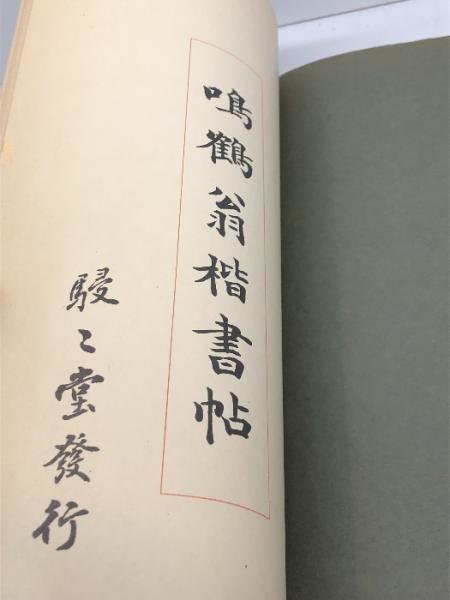 鳴鶴翁楷書帖
駸〻堂發行